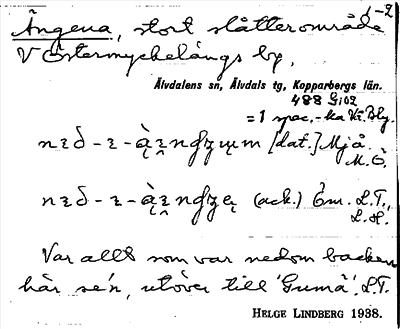 1-2
Ängena, stort slåtterområde
V Östermyckelängs by.
Älvdalens sn, Älvdals tg, Kopparbergs län.
488 G102
= 1 spec.-ka Vä. Bly.
[dat.] Mjå.
M.Ö.
(ack.) Öm. L.T.,
L.H.
Var allt som var nedom backen
här se'n, utöver till 'Gumå'. L.T.
HELGE LINDBERG 1938.